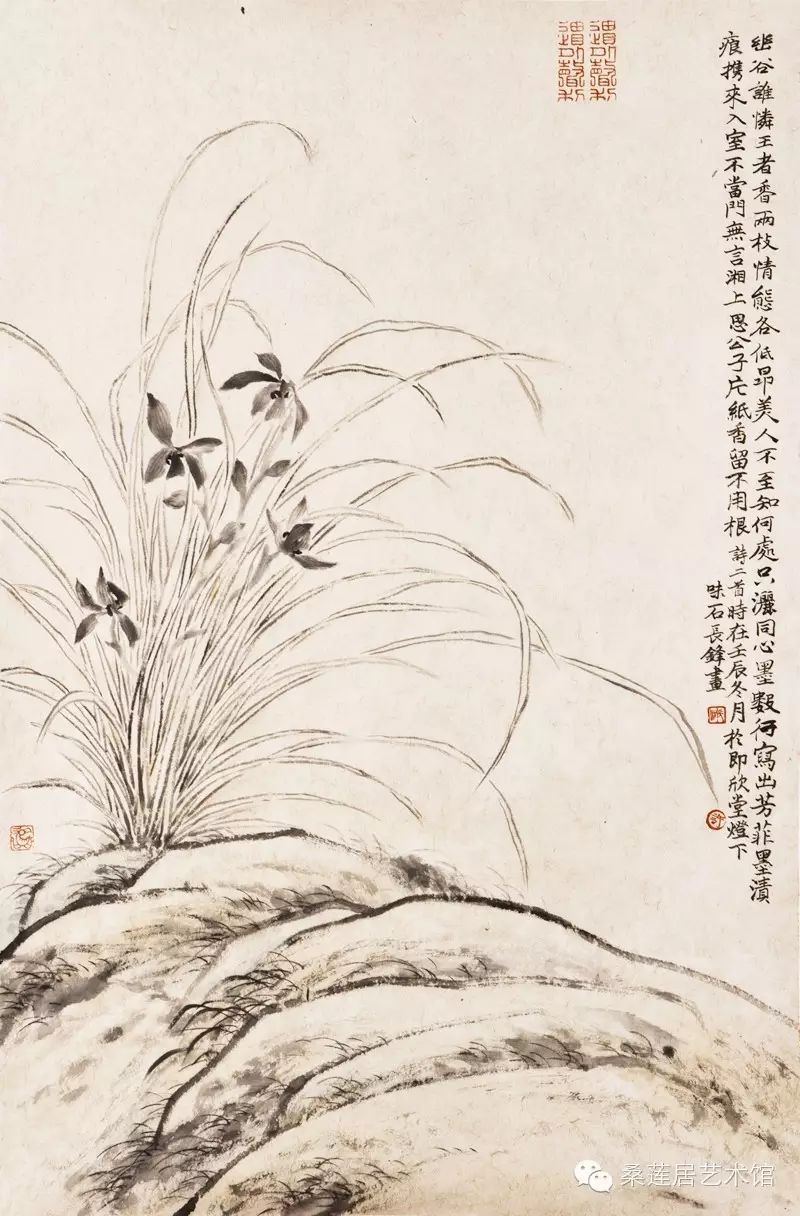 幽谷誰憐王者香兩枝情態各低昂美人不至知何處只灑同心墨數行寫出芳菲墨漬
痕携來入室不當門無言湘上思公子片紙香留不用根詩二首時在壬辰冬月於即欣堂燈下
味石長鋒畫
桑莲居艺术馆